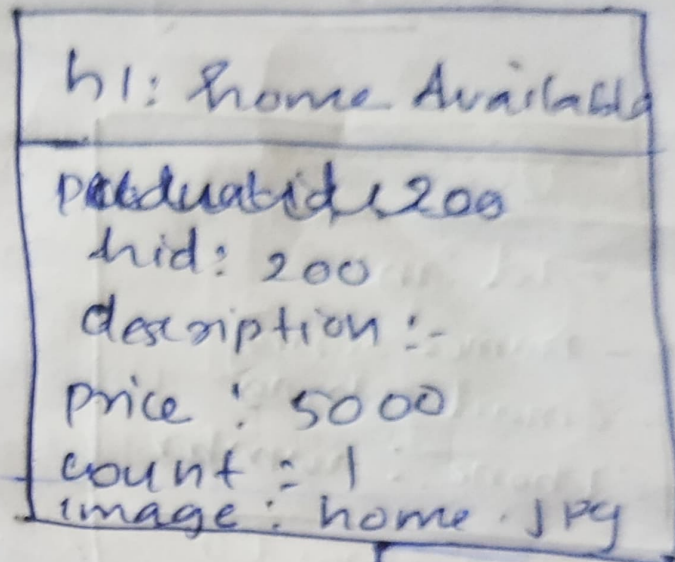 h1: home Available
productid: 200
hid: 200
description :-
price : 5000
count : 1
image : home.jpg